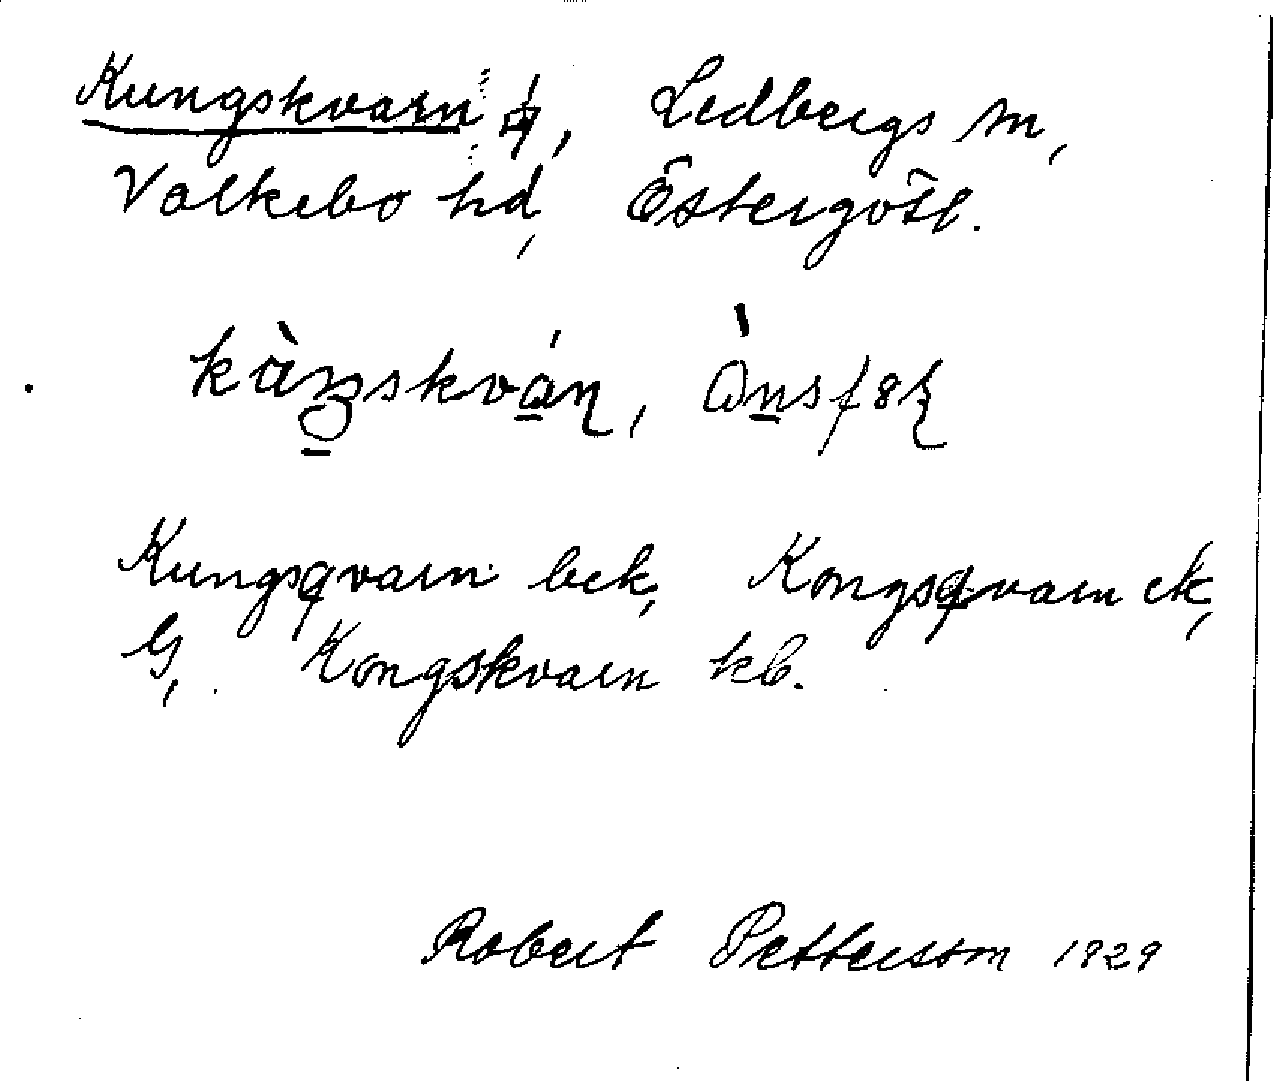 Kungskvarn, Ledbergs sn,
Valkebo hd, Östergötl.
Kungsqvarn bek, Kongsqvarn ek,
G, Kongskvarn kb.
Robert Pettersson 1929